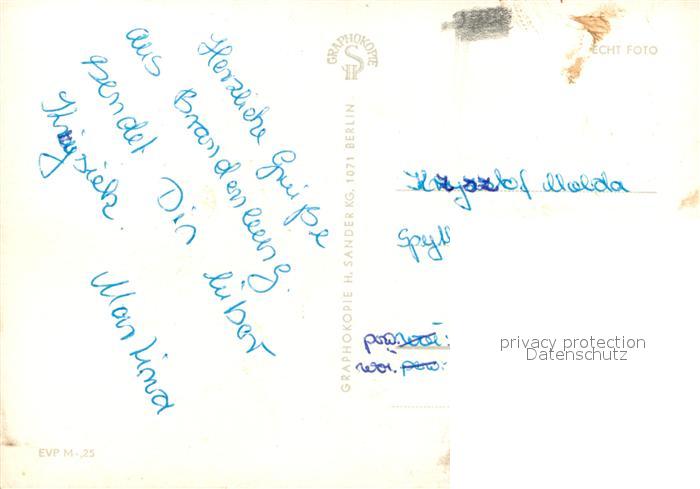 Herzliche Grüße
aus Brandenburg.
sendet Dir lieber
Martina
GRAPHOKOPIE
GRAPHOKOPIE H. SANDER KG, 1071 BERLIN
ECHT FOTO
Krzysztof Molda
pow. woi:
woi. pow:
privacy protection
Datenschutz
EVP M -,25